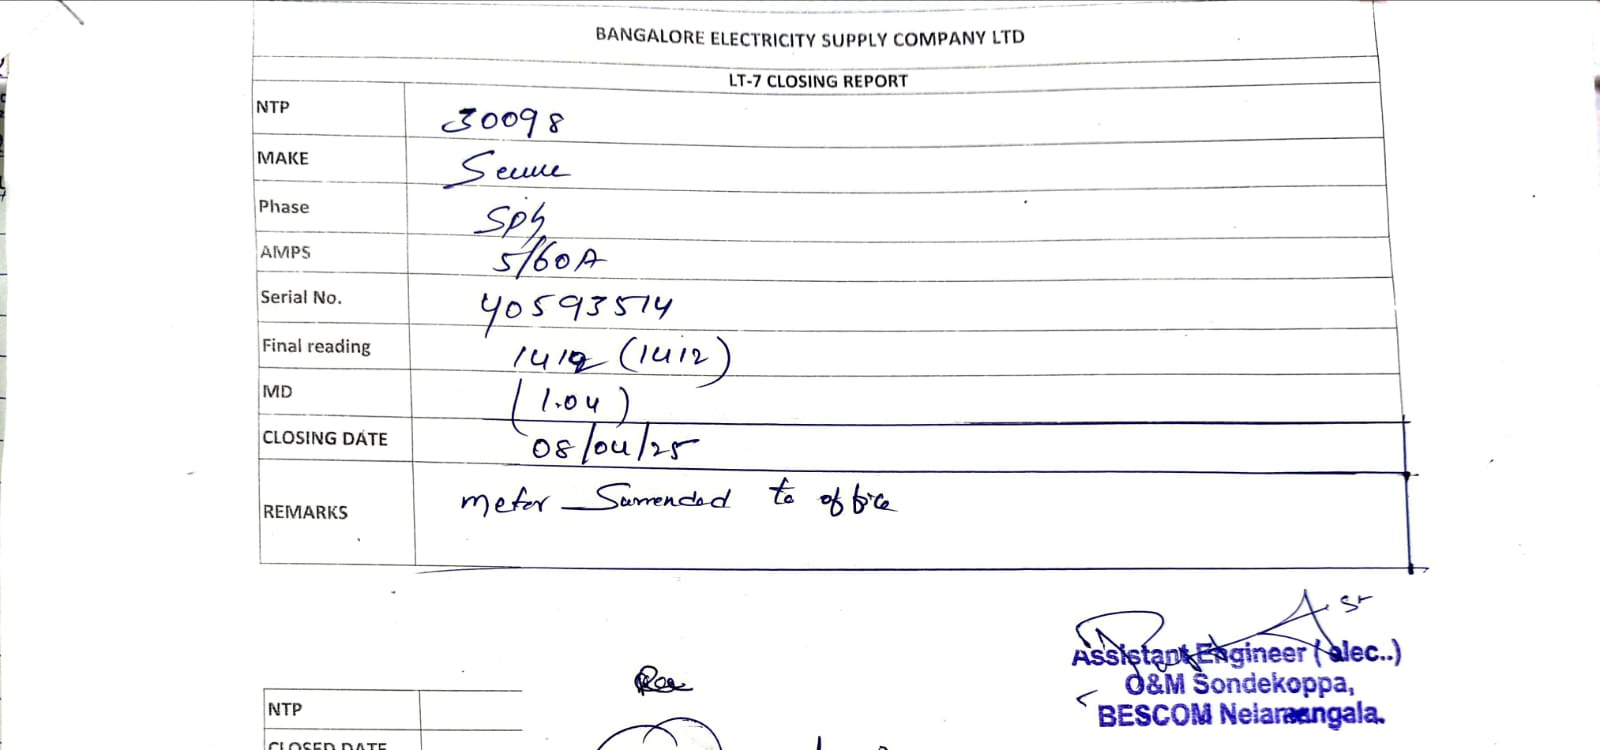 BANGALORE ELECTRICITY SUPPLY COMPANY LTD
LT-7 CLOSING REPORT
NTP 30098
MAKE Secure
Phase Sph
AMPS 5/60A
Serial No. 40593514
Final reading 1412 (1412)
MD (1.04)
CLOSING DATE 08/04/25
REMARKS meter Surrended to office
Assistant Engineer (elec..)
O&M Sondekoppa,
BESCOM Nelamangala.
NTP
CLOSED DATE